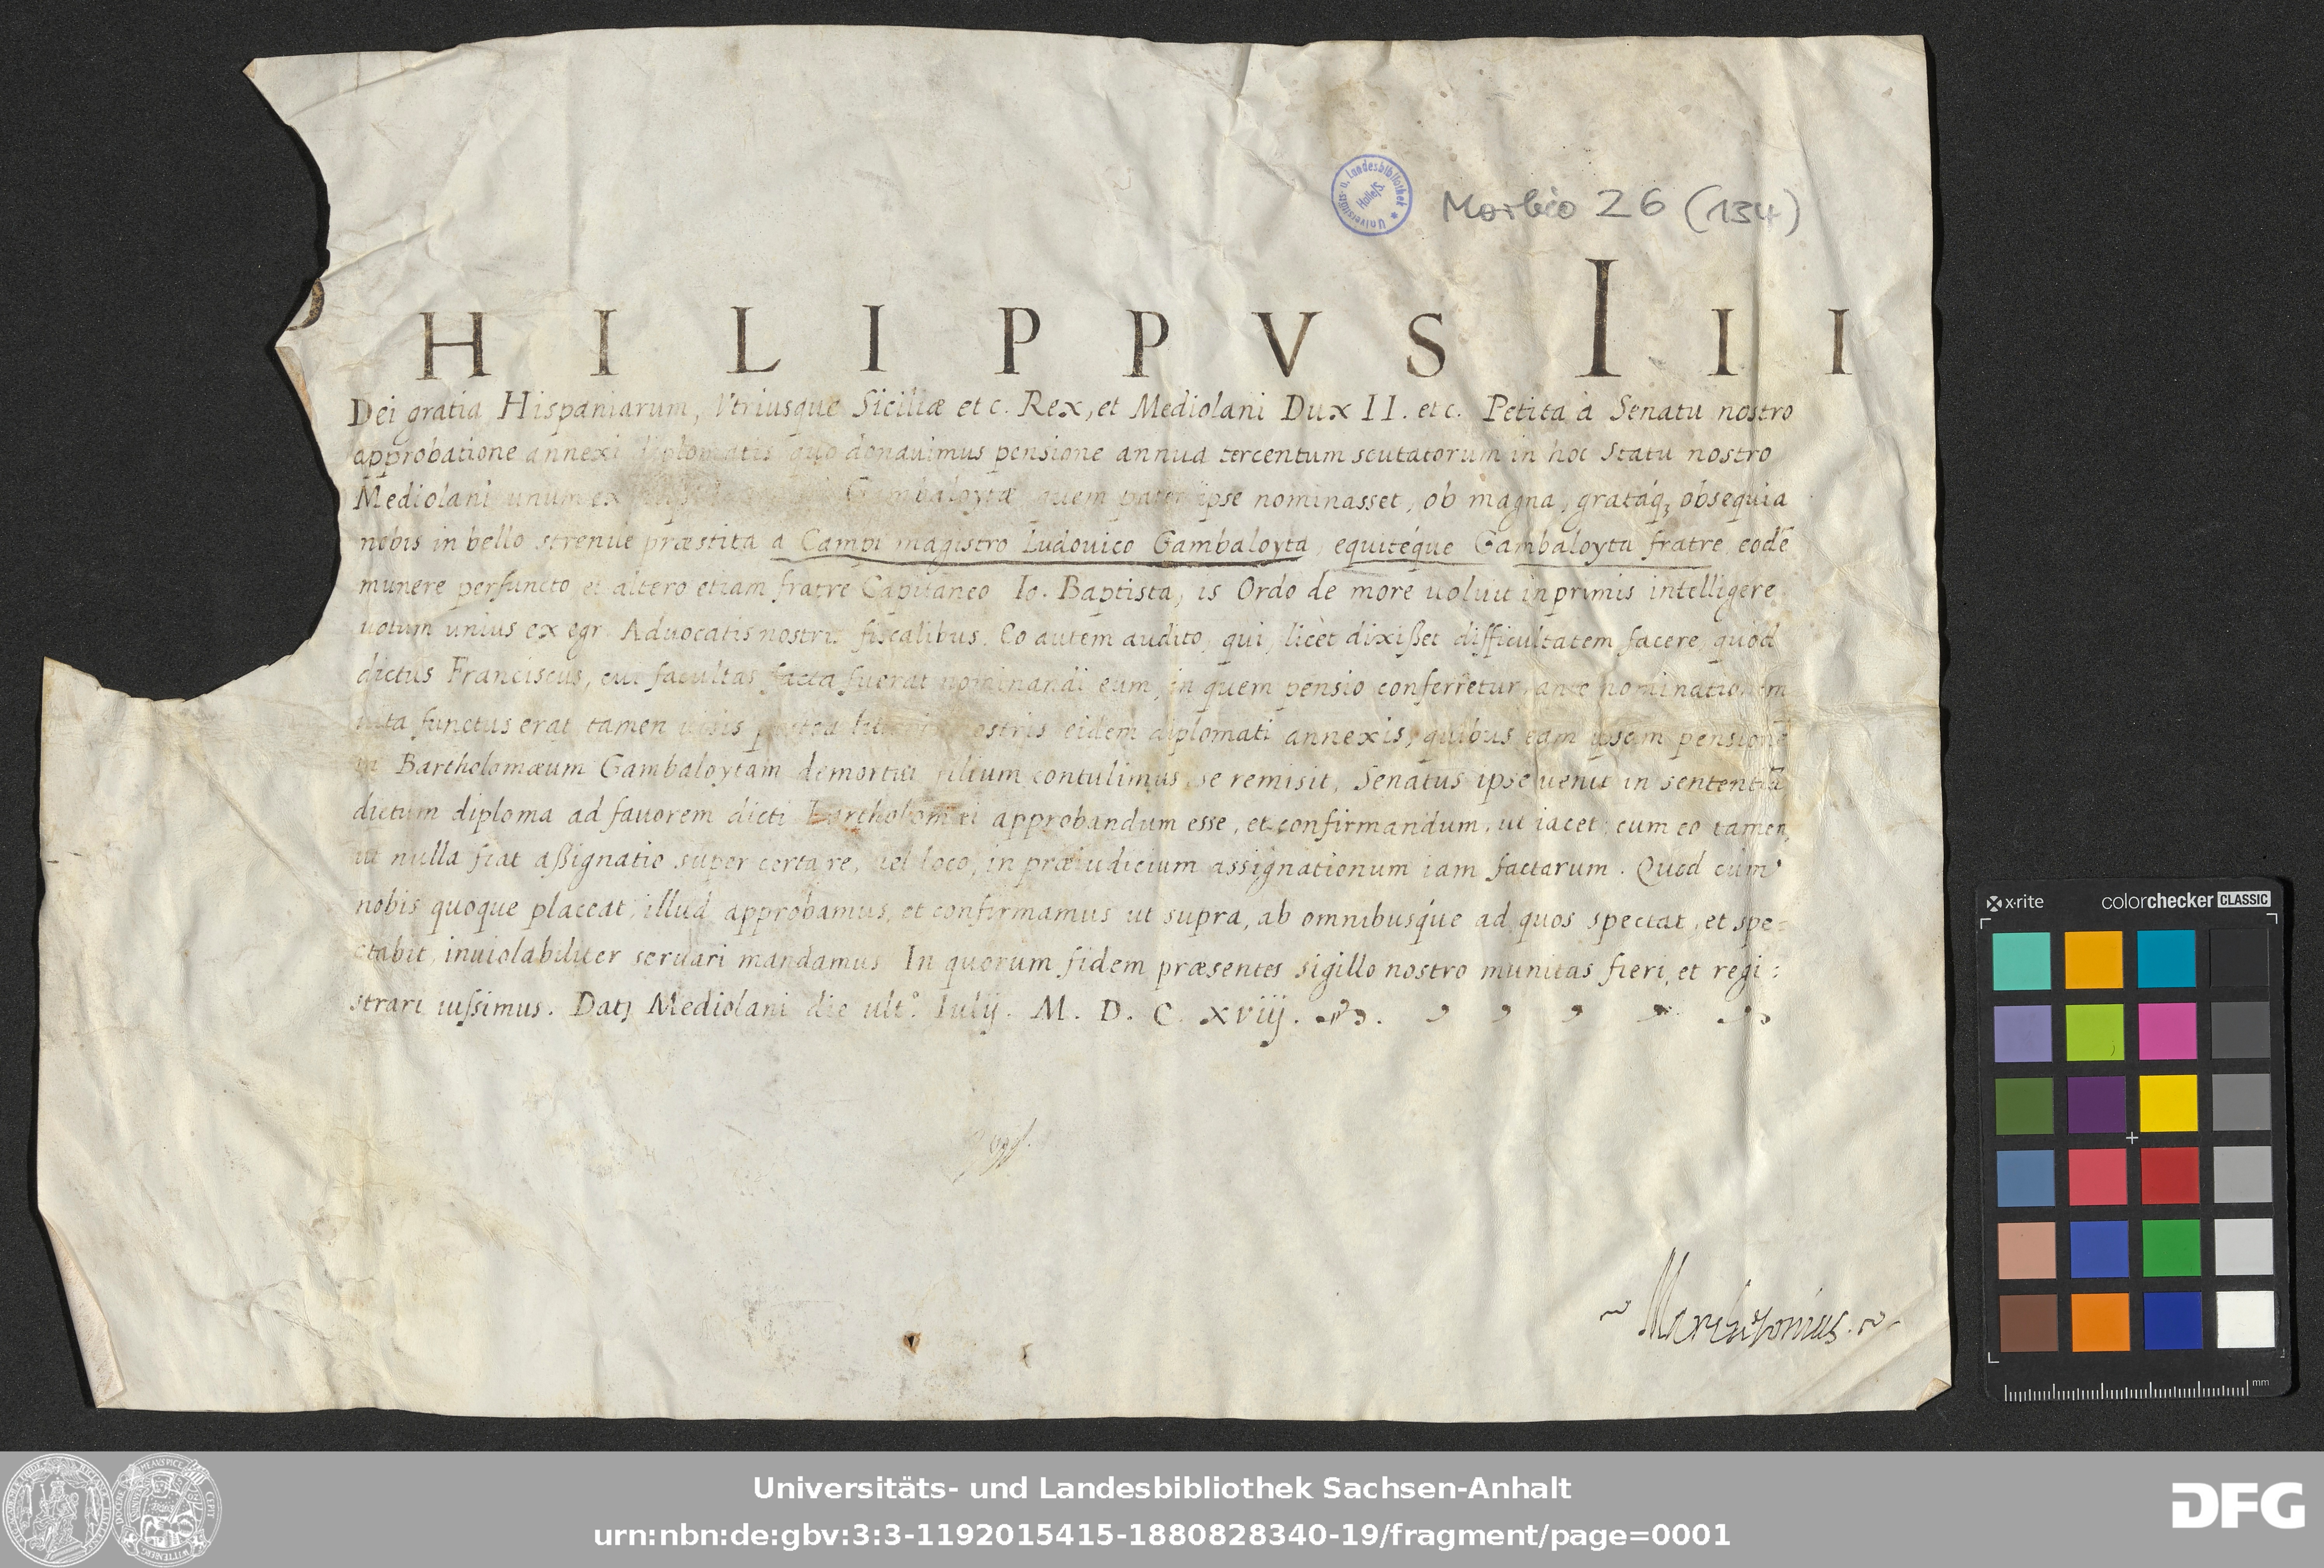 Universitäts- u. Landesbibliothek Halle/S.
Morbio 26 (134)
PHILIPPVS III
Dei gratia Hispaniarum, Vtriusque Siciliæ etc. Rex, et Mediolani Dux II. etc. Petita à Senatu nostro
approbatione annexi diplomatis quo donauimus pensione annua tercentum scutatorum in hoc Statu nostro
Mediolani unum ex Gambaloytæ quem pater ipse nominasset, ob magna, gratáq; obsequia
nobis in bello strenue præstita a Campi magistro Ludouico Gambaloyta, equitéque Gambaloyta fratre eodē
munere perfuncto, et altero etiam fratre Capitaneo Io. Baptista, is Ordo de more uoluit inprimis intelligere
uotum unius ex egr. Aduocatis nostris fiscalibus. Eo autem audito, qui, licèt dixißet difficultatem facere, quòd
dictus Franciscus, cui facultas facta fuerat nominandi eum, in quem pensio conferretur, ante nominationem
uita functus erat, tamen uisis postea nostris eidem diplomati annexis, quibus eam ipsam pensionē
in Bartholomæum Gambaloytam demortui filium contulimus, se remisit, Senatus ipse uenit in sententiā
dictum diploma ad fauorem dicti Bartholomæi approbandum esse, et confirmandum, ut iacet; cum eo tamen,
ut nulla fiat aßignatio super certa re, uel loco, in præiudicium assignationum iam factarum. Quod cùm
nobis quoque placeat, illud approbamus, et confirmamus ut supra, ab omnibusque ad quos spectat, et spe=
ctabit, inuiolabiliter seruari mandamus. In quorum fidem præsentes sigillo nostro munitas fieri, et regi:
strari iussimus. Datṣ Mediolani die ult.° Iulij. M. D. C. xviij.
x-rite
colorchecker CLASSIC
mm
Universitäts- und Landesbibliothek Sachsen-Anhalt
urn:nbn:de:gbv:3:3-1192015415-1880828340-19/fragment/page=0001
DFG